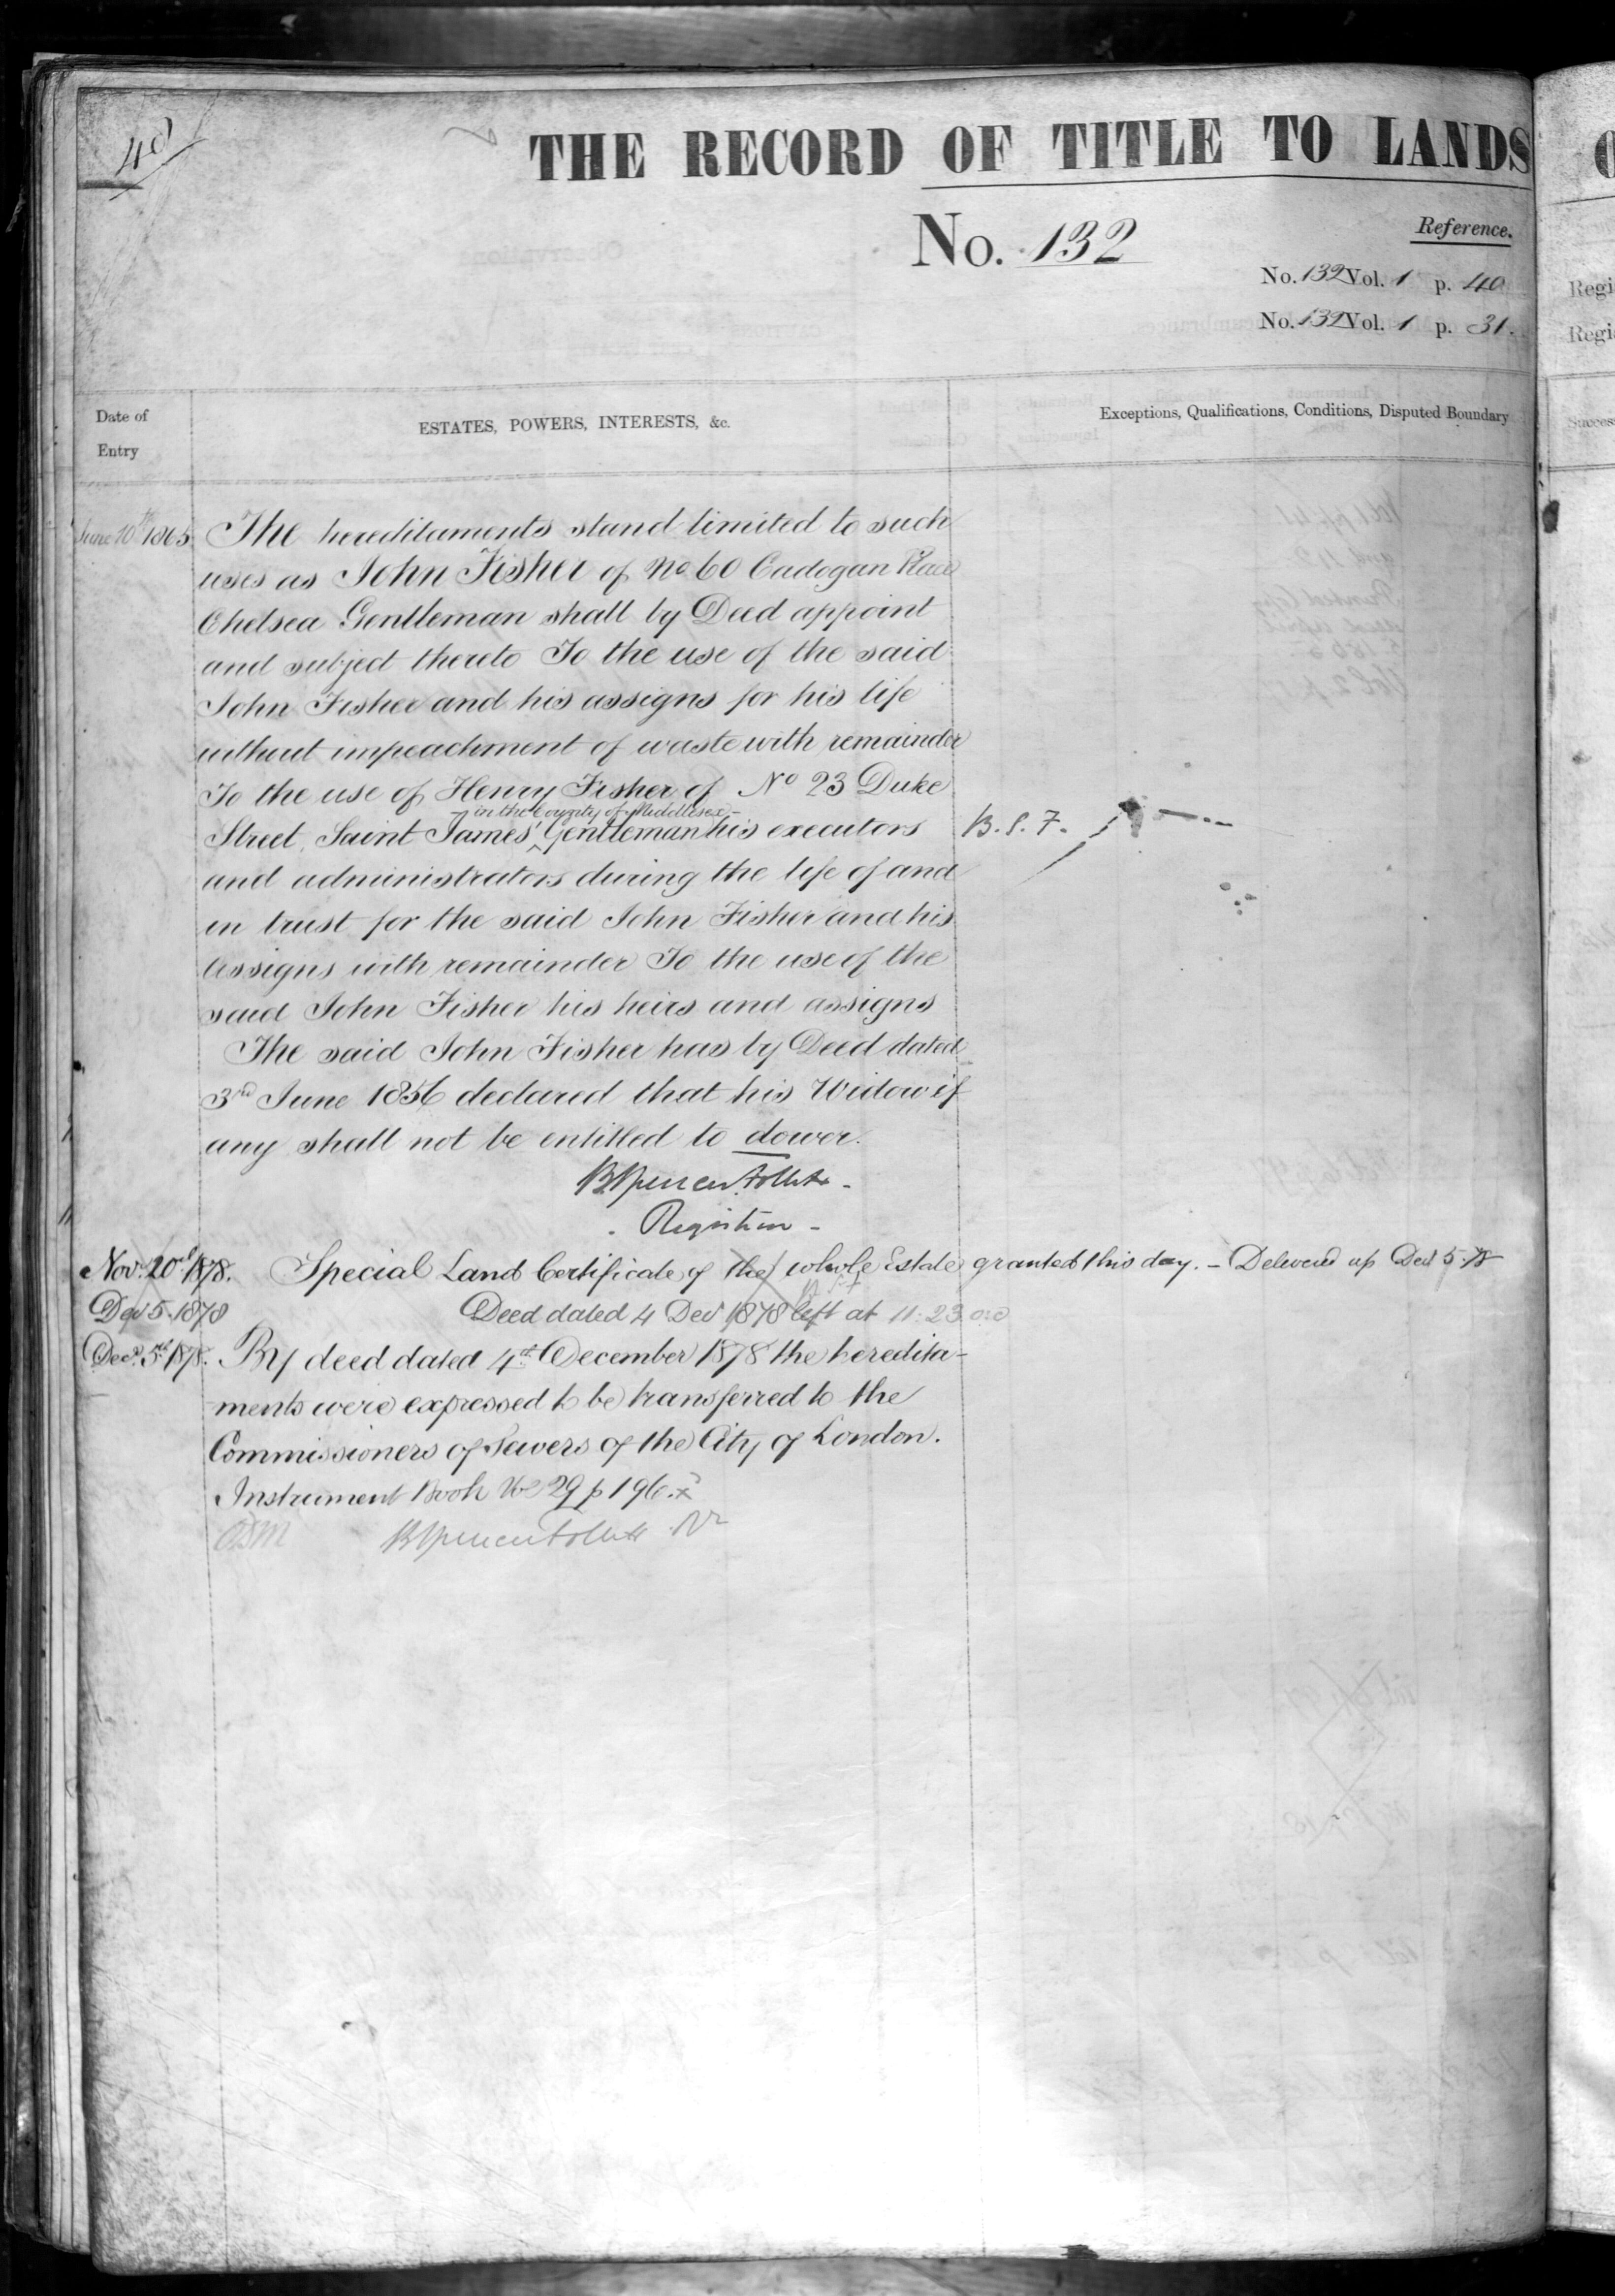 40
THE RECORD OF TITLE TO LANDS
No. 132
Reference.
No. 132 Vol. 1 p. 40
No. 132 Vol. 1 p. 31.
Date of Entry
ESTATES, POWERS, INTERESTS, &c.
Exceptions, Qualifications, Conditions, Disputed Boundary
June 10th 1865 The hereditaments stand limited to such
uses as John Fisher of No 60 Cadogan Place
Chelsea Gentleman shall by Deed appoint
and subject thereto To the use of the said
John Fisher and his assigns for his life
without impeachment of waste with remainder
To the use of Henry Fisher of No 23 Duke
in the County of Middlesex
Street Saint James' Gentleman his executors B. S. F.
and administrators during the life of and
in trust for the said John Fisher and his
Assigns with remainder To the use of the
said John Fisher his heirs and assigns
The said John Fisher has by Deed dated
3rd June 1856 declared that his Widow if
any shall not be entitled to dower.
Registrar
Nov. 20 1878. Special Land Certificate of the whole Estate granted this day. - Delivered up Dec 5. 78
Dec 5. 1878 Deed dated 4 Dec 1878 left at 11.23
Dec. 5th 1878. By deed dated 4th December 1878 the heredita-
ments were expressed to be transferred to the
Commissioners of Sewers of the City of London.
Instrument Book Vol 29 p 196.
Regi
Regi
Success